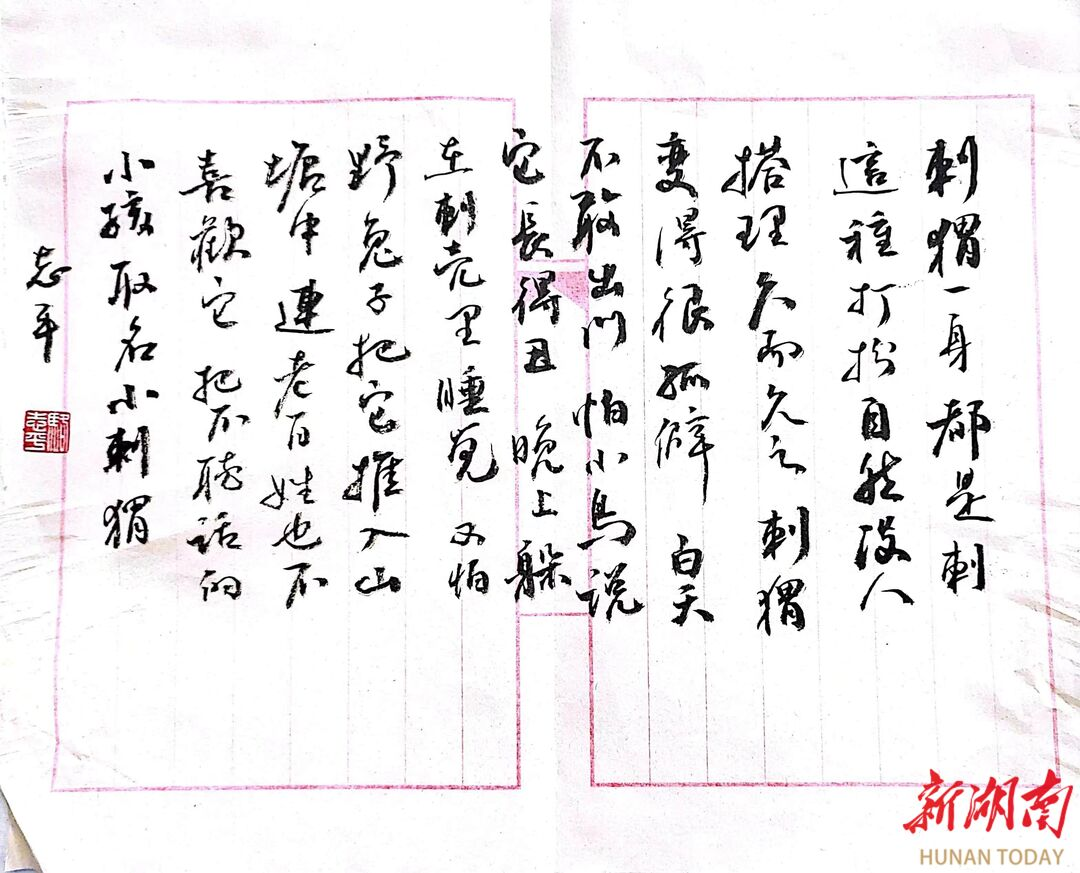 刺猬一身都是刺
這種打扮自然没人
搭理久而久之刺猬
变得很孤僻 白天
不敢出门 怕小鸟说
它長得丑 晚上躲
在刺壳里睡觉 又怕
野兔子把它推入山
塘中連老百姓也不
喜歡它 把不聴话的
小孩取名小刺猬
志平
新湖南
HUNAN TODAY